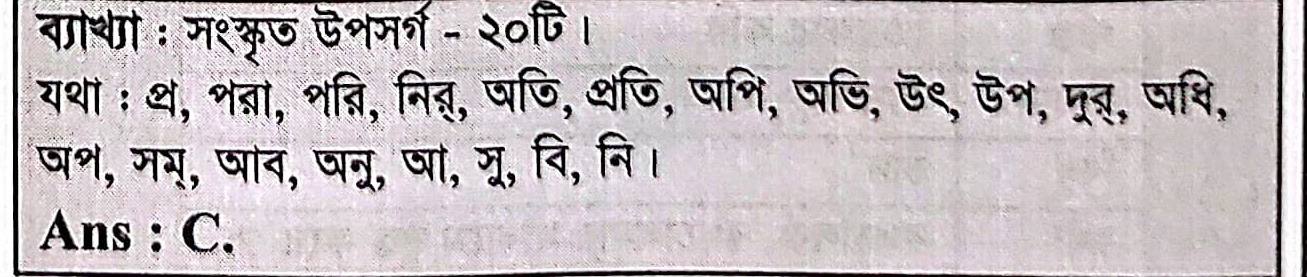 ব্যাখ্যা : সংস্কৃত উপসর্গ - ২০টি।
যথা : প্র, পরা, পরি, নির্, অতি, প্রতি, অপি, অভি, উৎ, উপ, দুর্, অধি,
অপ, সম্, আব, অনু, আ, সু, বি, নি।
Ans : C.